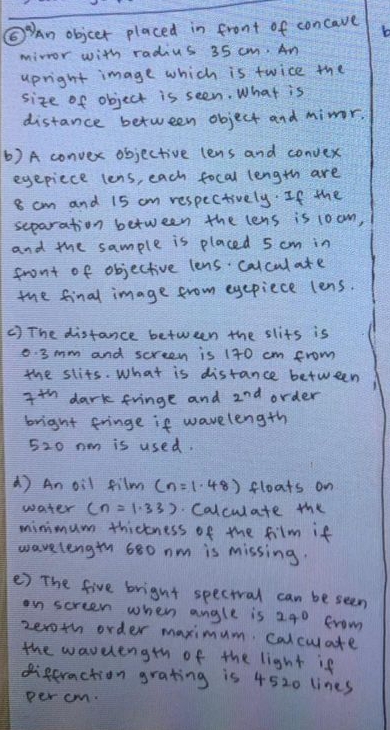 6 a) An objcet placed in front of concave
mirror with radius 35 cm. An
upright image which is twice the
size of object is seen. What is
distance between object and mirror.
b) A convex objective lens and convex
eyepiece lens, each focal length are
8 cm and 15 cm respectively. If the
separation between the lens is 10 cm,
and the sample is placed 5 cm in
front of objective lens. Calculate
the final image from eyepiece lens.
c) The distance between the slits is
0.3 mm and screen is 170 cm from
the slits. What is distance between
7th dark fringe and 2nd order
bright fringe if wavelength
520 nm is used.
d) An oil film (n=1.48) floats on
water (n = 1.33). Calculate the
minimum thickness of the film if
wavelength 680 nm is missing.
e) The five bright spectral can be seen
on screen when angle is 24° from
zeroth order maximum. Calculate
the wavelength of the light if
diffraction grating is 4520 lines
per cm.